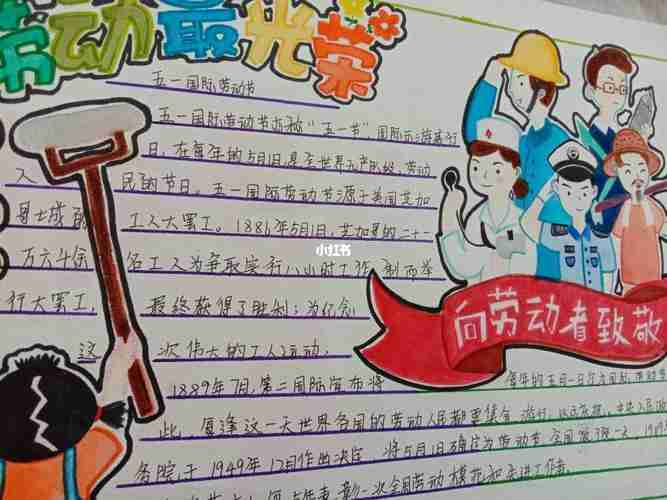 劳动最光荣
五一国际劳动节
五一国际劳动节亦称“五一节”国际示游行
日,在每年的5月1日是全世界无产阶级、劳动
人民的节日。五一国际劳动节源于美国芝加
哥士城的工人大罢工。1886年5月1日,芝加哥的二十一
万六千余名工人为争取实行八小时工作制而举
行大罢工,最终获得了胜利;为纪念
这次伟大的工人运动,
1889年7月,第二国际宣布将每年的五月一日定为国
此,每逢这一天世界各国的劳动人民都要集会、游行,以示庆祝,中央人民政
务院于1949年12月作出决定,将5月1日确定为劳动节,全国放假一天,1989
次全国劳动模范和先进工作者
向劳动者致敬
小红书